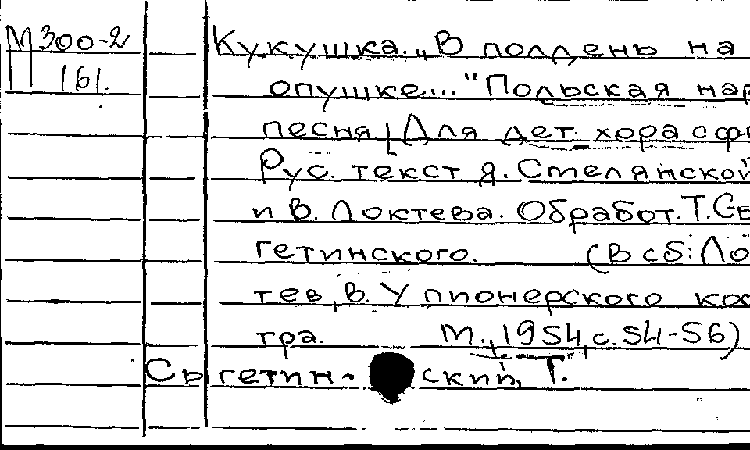 М300-2 Кукушка. „В полдень на
161. опушке...." Польская нар
песня. Для дет. хора с ф
Рус. текст Я. Стелянской
и В. Локтева. Обработ. Т. Сы
гетинского. (В сб: Ло
тев, В. У пионерского кос
тра. М., 1954, с. 54-56)
Сыгетин-ский, Т.